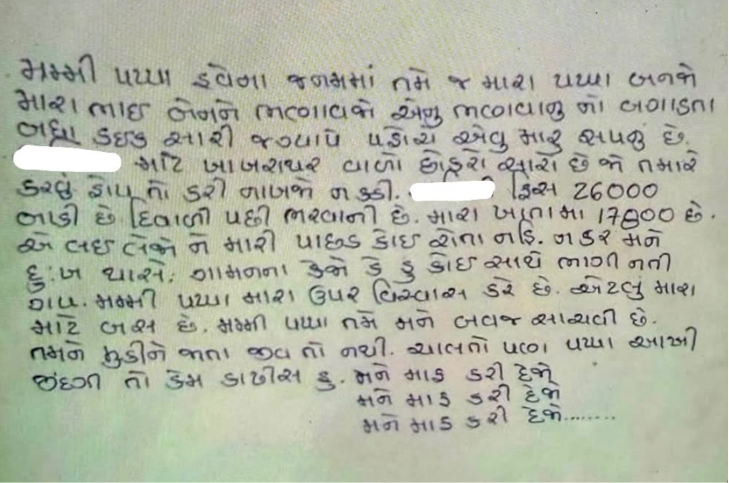 મમ્મી પપ્પા હવેના જનમમાં તમે જ મારા પપ્પા બનજો
મારા ભાઇ બેનને ભણાવજો એનુ ભણવાનુ નો બગાડતા
બધા કઇક સારી જગ્યાપે પહોચે એવુ મારુ સપનુ છે.
માટે ખાખરાથર વાળો છોકરો સારો છે જો તમારે
કરવું હોય તો કરી નાખજો નક્કી. ફિસ 26000
બાકી છે દિવાળી પછી ભરવાની છે. મારા ખાતામા 17800 છે.
એ લઇ લેજો ને મારી પાછડ કોઇ રોતા નહિ. નકર મને
દુઃખ થાસે. ગામનના કેજો કે હુ કોઇ સાથે ભાગી નતી
ગઇ. મમ્મી પપ્પા મારા ઉપર વિશ્વાસ કરે છે. એટલું મારા
માટે બસ છે. મમ્મી પપ્પા તમે મને બવજ સાચવી છે.
તમને મુકીને જાતા જીવ તો નથી. ચાલતો પણ પપ્પા આખી
જીંદગી તો કેમ કાઢીસ હુ. મને માફ કરી દેજો
મને માફ કરી દેજો
મને માફ કરી દેજો........